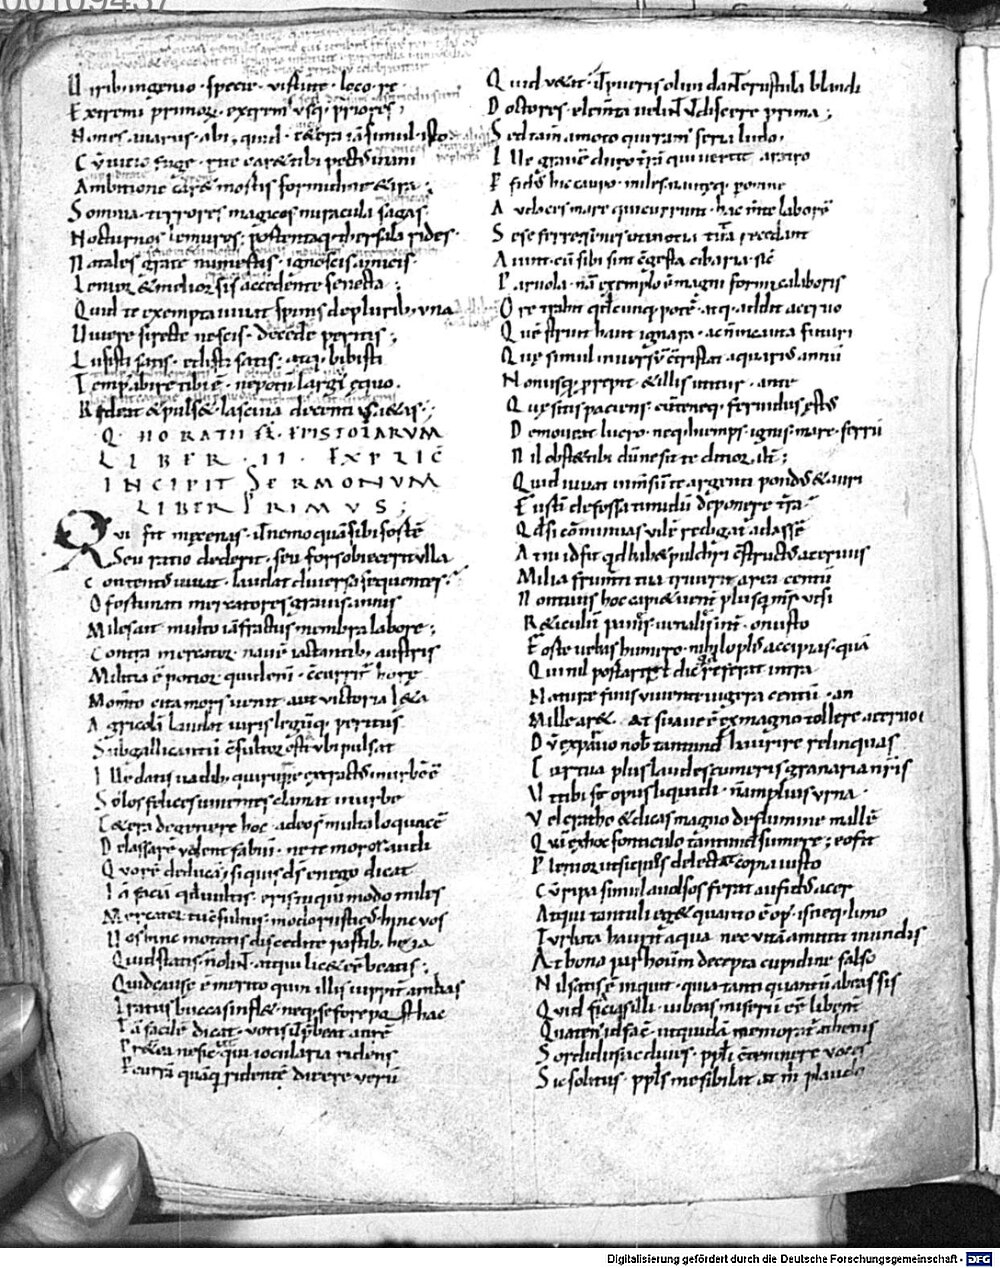 00109437
Uirib; ingenio · specie · virtute · loco · re ·
Extremi primor̄ · extremis usq; priores ;
Non es auarus · abi · quid · cetera iā simul · isto
Cū uitio fuge · caret tibi pectus inani
Ambitione caret mortis formidine & ira ;
Somnia · terrores magicos miracula sagas
Nocturnos lemures · portentaq; thessala rides ·
Natales grate numeras · ignoscis amicis
Lenior & melior fis accedente senecta ;
Quid te exempta iuuat spinis de plurib; una
Uiuere si recte nescis · decede peritis ;
Lusisti satis · edisti satis · atq; bibisti
Temp abire tibi ē · ne potū largi' equo ·
Rideat & pulset lasciua decentius etas ;
Q · HORATII FL · EPISTOLARVM
LIBER · II · EXPLIC
INCIPIT SERMONVM
LIBER PRIMVS ;
Qui fit mecenas · ut nemo quā sibi sortē
Seu ratio dederit · seu fors obiecerit illa
Contentus uiuat · laudat diuersa sequentes ·
O fortunati mercatores grauis annis
Miles ait multo iā fractus membra labore ;
Contra mercator · nauē iactantib; austris
Militia ē potior quid enī · cc̄urrit̄ horę
Momto cita mors uenit aut uictoria lęta
Agricolā laudat iuris legūq; peritus
Sub galli cantū c̄sultor ostia ubi pulsat
Ille datis uadib; qui rure extractus in urbē ē
Solos felices uiuentes clamat in urbe
Cetera de genere hoc · adeo s̄ multa loquacē
Delassare ualent fabiū · ne te morer audi
Quo rē deducā · si quis ds̄ en ego dicat
Iā faciā qd uultis · eris tu qui modo miles
Mercator tu c̄sultus · modo rusticus hinc uos
Uos hinc mutatis discedite partib; heia
Quid statis · nolint · atqui licet eē beatis ;
Quid causę ē merito quin illis iuppit̄ ambas
Iratus buccas inflet · neq; se fore posthac
Tā facilē dicat · uotis ut p̄beat aurē
Preterea ne sic · ut qui iocularia ridens
Percurrā quāq; ridentē dicere uerū
Quid uetat · ut pueris olim dant crustula blandi
Doctores · elemta uelint ut discere prima ;
Sed tamen amoto queram' seria ludo ·
Ille grauē duro terrā qui uertit aratro
Perfidus hic caupo · miles nautęq; p omne
Audaces mare qui currunt · hac m̄te laborē
Sese ferre senes ut in otia tuta recedant
Aiunt cū sibi sint c̄gesta cibaria · sic̄
Paruola · nā exemplo ē magni formica laboris
Ore trahit qdcumq; potē · atq; addit aceruo
Quē struit haut ignara · ac n̄ incauta futuri
Que simul inuersū c̄tristat aquarius annū
Non usquā prorepit · & illis utitur · ante
Quesitis patiens · cū te neq; feruidus estus
Demoueat lucro · neq; hiemps · ignis · mare · ferrū
Nil obstet tibi dū ne sit te ditior alt̄ ;
Quid iuuat inm̄sū te argenti pondus & auri
Furtī defossa timidū deponere terra ·
Qd si cōminuas uilē redigat̄ ad assē
At ni id fit qd habet pulchri c̄structus aceruus
Milia frumti tua triuerit area centū
Non tuus hoc capiet uent̄ plus quā m̄s ut si
Reticulū panis · uenalis int̄ · onusto
Forte uehas humero · nihilo plus accipias · quā
Qui nil portarit dic quid referat intra
Naturę fines uiuenti iugera centū · an
Mille aret · at suaue ē ex magno tollere aceruo ;
Dū ex paruo nob tantund haurire relinquas
Cur tua plus laudes cumeris granaria nr̄is
Ut tibi si sit opus liquidi · n̄ amplius urna ·
Vel ciatho & dicas magno de flumine mallē
Quā ex hoc fonticulo tantund sumere ; eo fit
Plenior ut si quos delectet copia iusto
Cū ripa simul auolsos ferat aufidus acer
At qui tantuli eget quanto ē op' · is neq; limo
Turbatā haurit aquā nec uitā amittit in undis
At bona pars hoīum decepta cupidine falso
Nil satis ē inquit · quia tanti quantū abeas sis
Quid facias illi · iubeas miserū eē libent̄
Quaten' id facit · ut quidā memorat̄ athenis
Sordidus ac diues · ppl'i c̄temnere uoces
Sic solitus · ppl's me sibilat · at m̄ plaudo
Digitalisierung gefördert durch die Deutsche Forschungsgemeinschaft - DFG